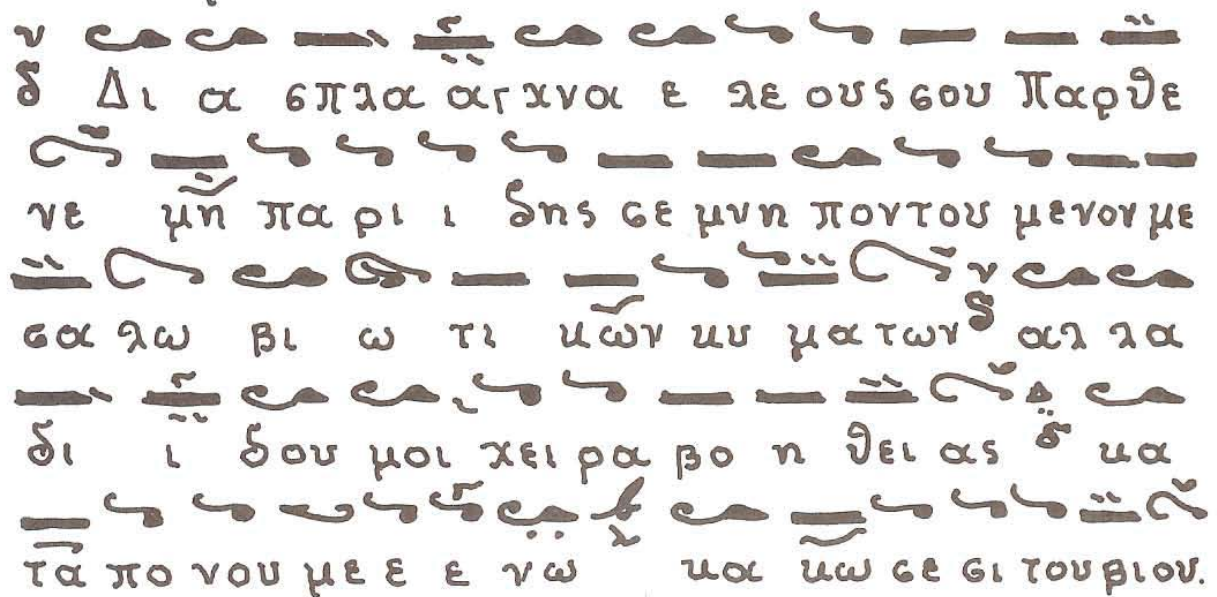 δ Δι α σπλα αγ χνα ε λε ους σου Παρθε
νε μη πα ρι ι δης σε μνη ποντου μενον με
σα λω βι ω τι κων κυ μα των δ αλ λα
δι ι δου μοι χει ρα βο η θει ας δ κα
τα πο νου με ε ε νω κα κω σε σι του βιου.